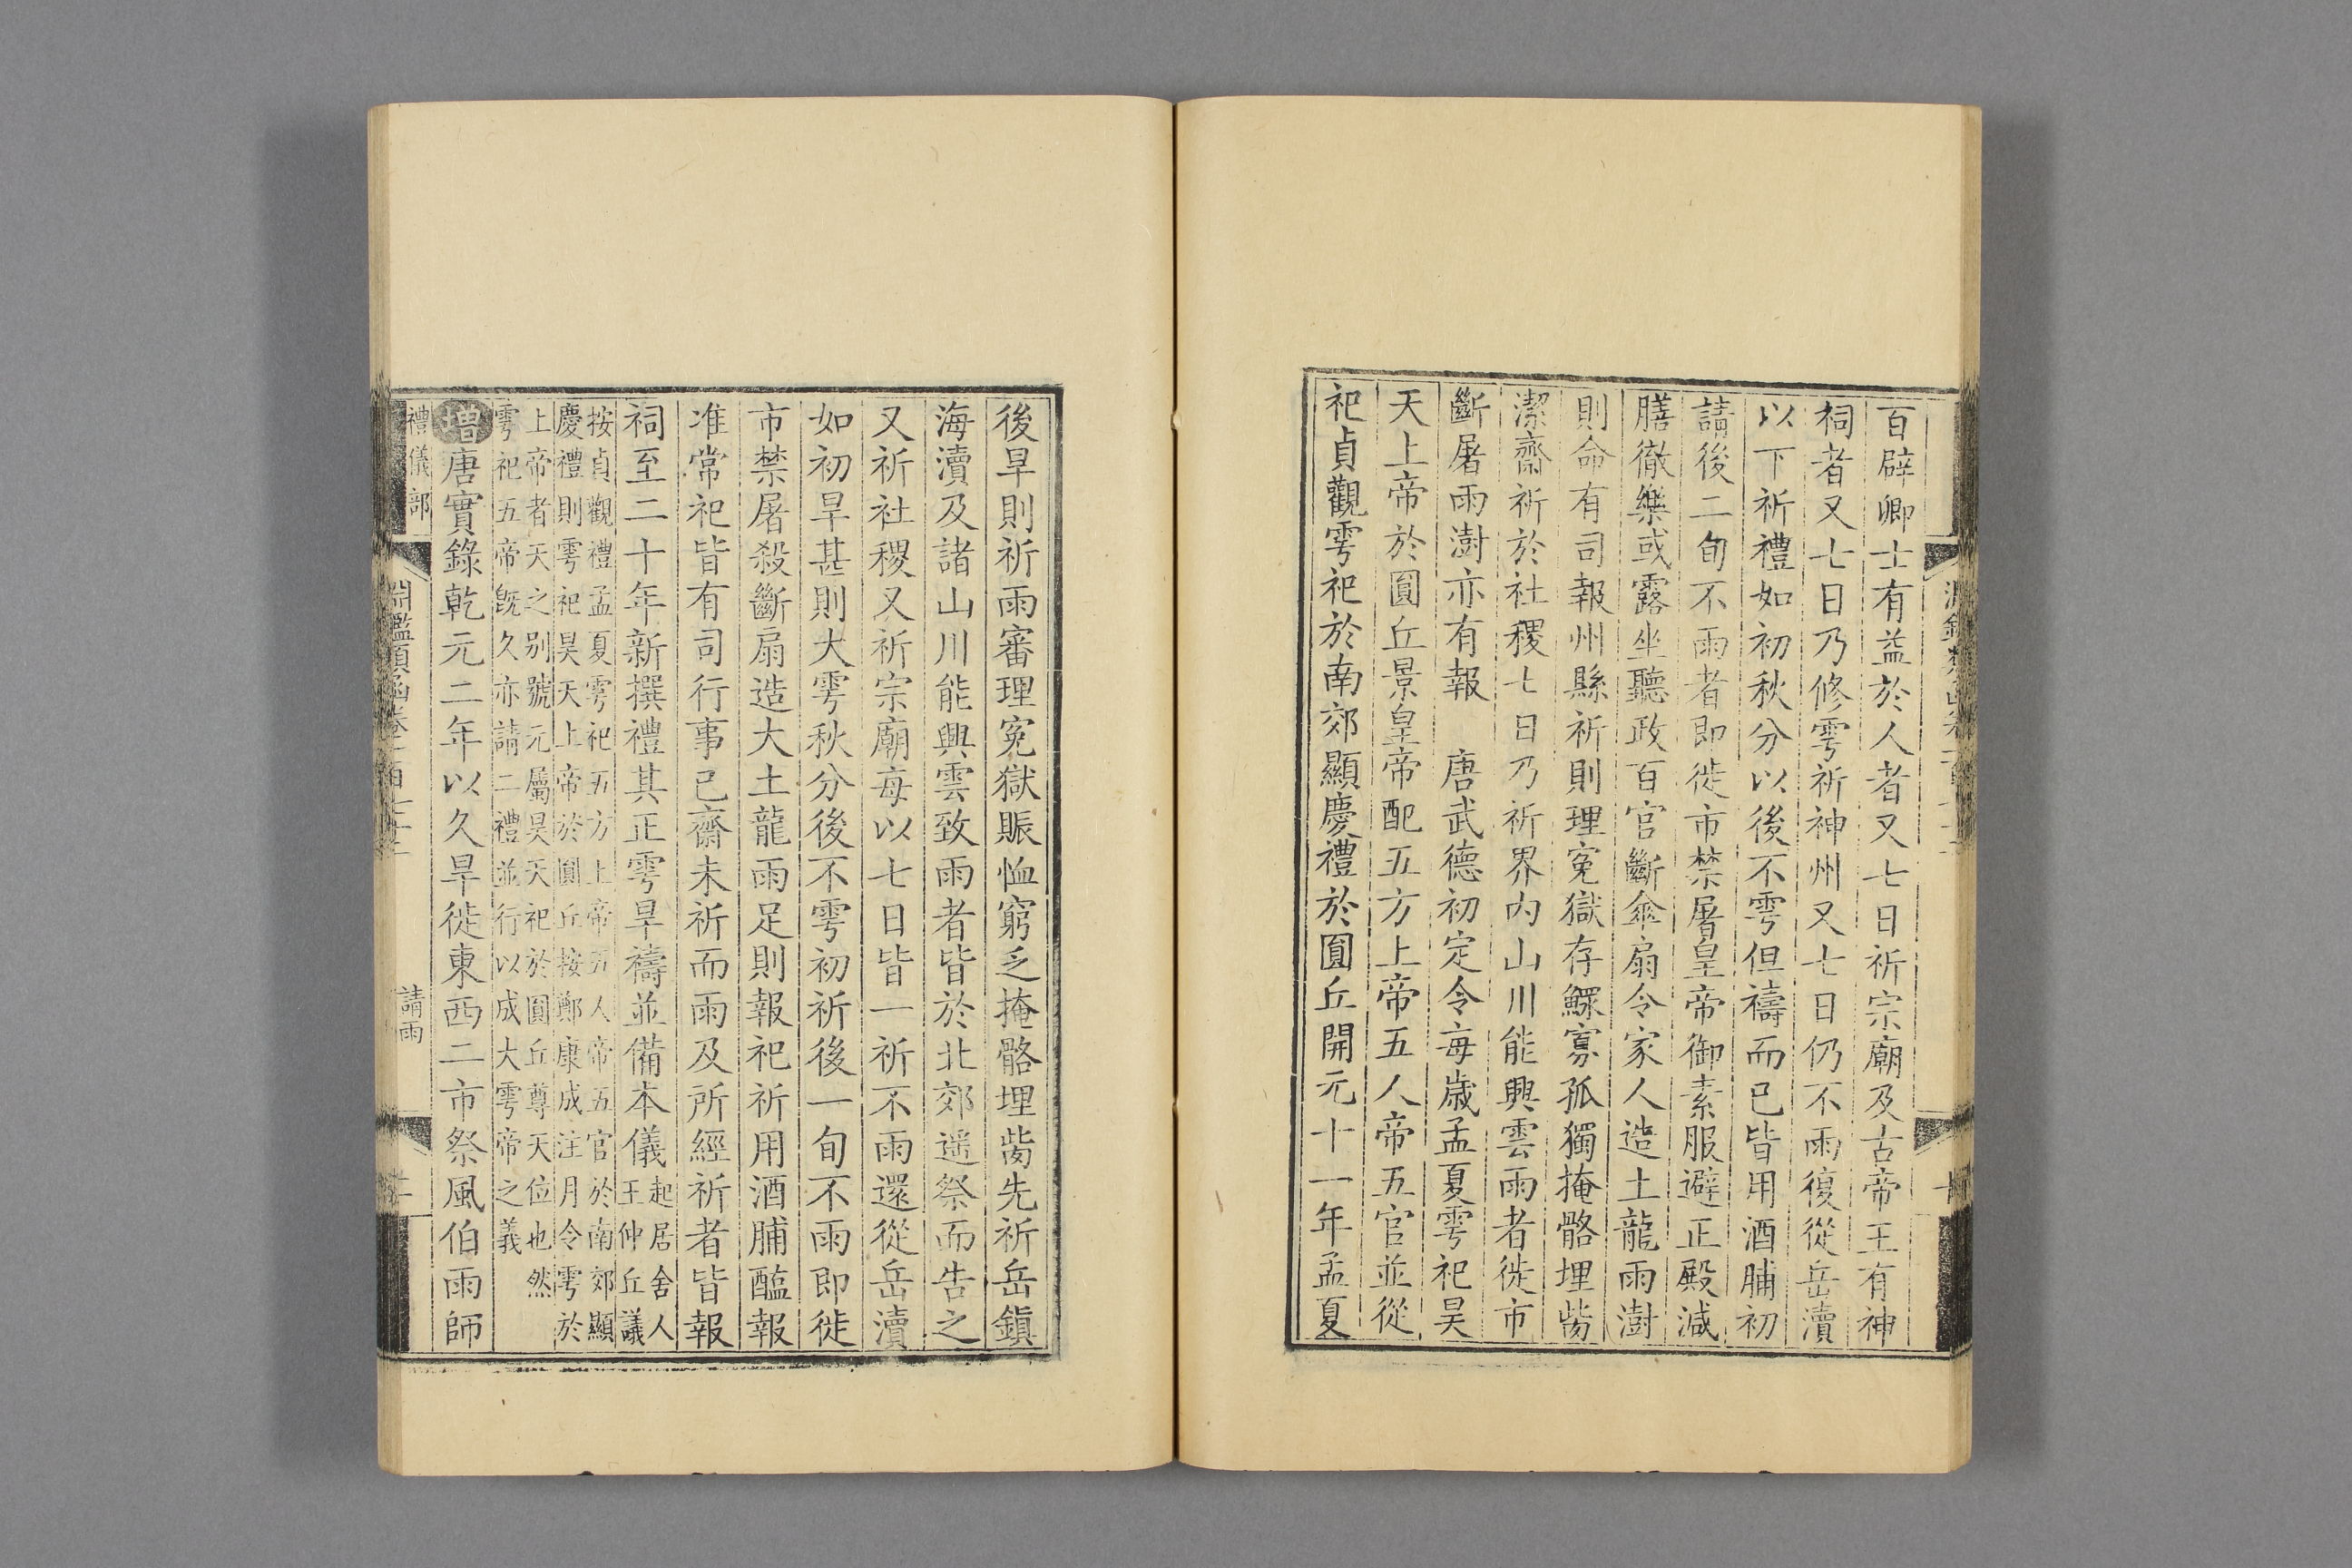 百辟卿士有益於人者又七日祈宗廟及古帝王有神
祠者又七日乃修雩祈神州又七日仍不雨復從岳瀆
以下祈禮如初秋分以後不雩但禱而已皆用酒脯初
請後二旬不雨者即徙市禁屠皇帝御素服避正殿減
膳徹樂或露坐聽政百官斷傘扇令家人造土龍雨澍
則命有司報州縣祈則理寃獄存鰥寡孤獨掩骼埋胔
潔齋祈於社稷七日乃祈界內山川能興雲雨者徙市
斷屠雨澍亦有報　唐武德初定令每歲孟夏雩祀昊
天上帝於圓丘景皇帝配五方上帝五人帝五官並從
祀貞觀雩祀於南郊顯慶禮於圓丘開元十一年孟夏
後旱則祈雨審理寃獄賑恤窮乏掩骼埋胔先祈岳鎮
海瀆及諸山川能興雲致雨者皆於北郊遥祭而告之
又祈社稷又祈宗廟每以七日皆一祈不雨還從岳瀆
如初旱甚則大雩秋分後不雩初祈後一旬不雨即徙
市禁屠殺斷扇造大土龍雨足則報祀祈用酒脯醢報
准常祀皆有司行事已齋未祈而雨及所經祈者皆報
祠至二十年新撰禮其正雩旱禱並備本儀起居舍人
王仲丘議
按貞觀禮孟夏雩祀五方上帝五人帝五官於南郊顯
慶禮則雩祀昊天上帝於圓丘按鄭康成注月令雩於
上帝者天之别號元屬昊天祀於圓丘尊天位也然
雩祀五帝既久亦請二禮並行以成大雩帝之義
增唐實錄乾元二年以久旱徙東西二市祭風伯雨師
禮儀部
淵鑑類函卷一百七十二
請雨